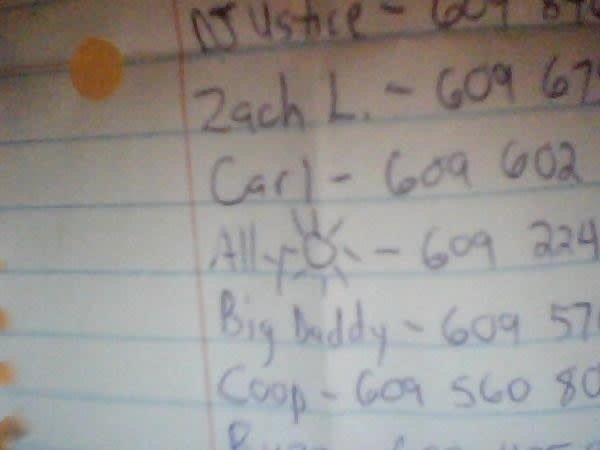 Justice - 609
Zach L. - 609 67
Carl - 609 602
Ally - 609 224
Big Daddy - 609 57
Coop - 609 560 80